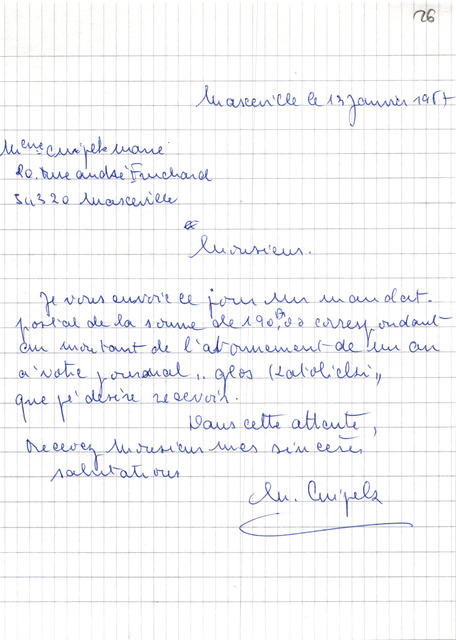 26
Maxeville le 13 Janvier 1987
Mme Cuipek Marie
20. rue andré Fruchard
54320 Maxeville
Monsieur.
Je vous envoie ce jour un mandat.
postal de la somme de 190F,00 correspondant
au montant de l'abonnement de un an
a'votre journal ,, glos Katolicki ,,
que je désire recevoir.
Dans cette attente,
Recevez Monsieur mes sincères
salutations
M. Cuipek